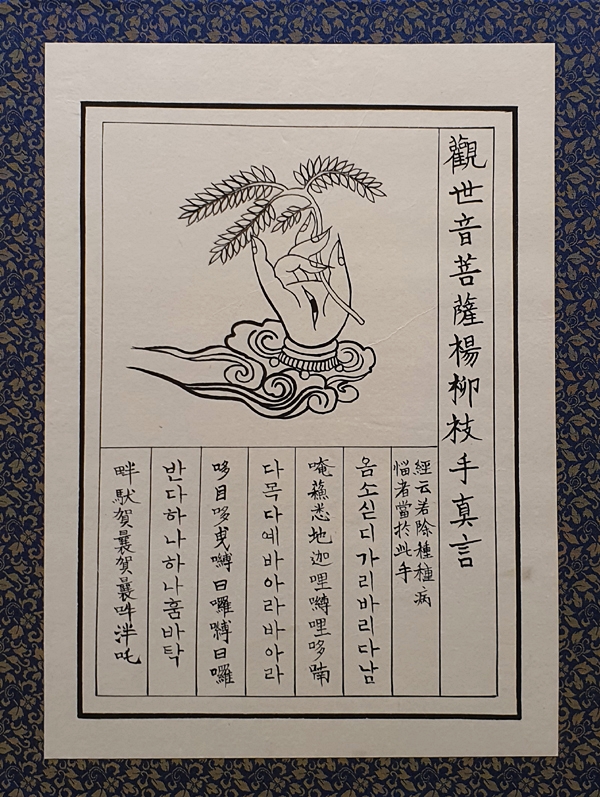 觀世音菩薩楊柳枝手真言
經云若除種種病
惱者當於此手
옴소싣디가리바리다남
唵蘓悉地迦哩嚩哩哆喃
다목다예바아라바아라
哆目哆曳嚩日囉嚩日囉
반다하나하나훔바탁
畔馱賀曩賀曩吽泮吒